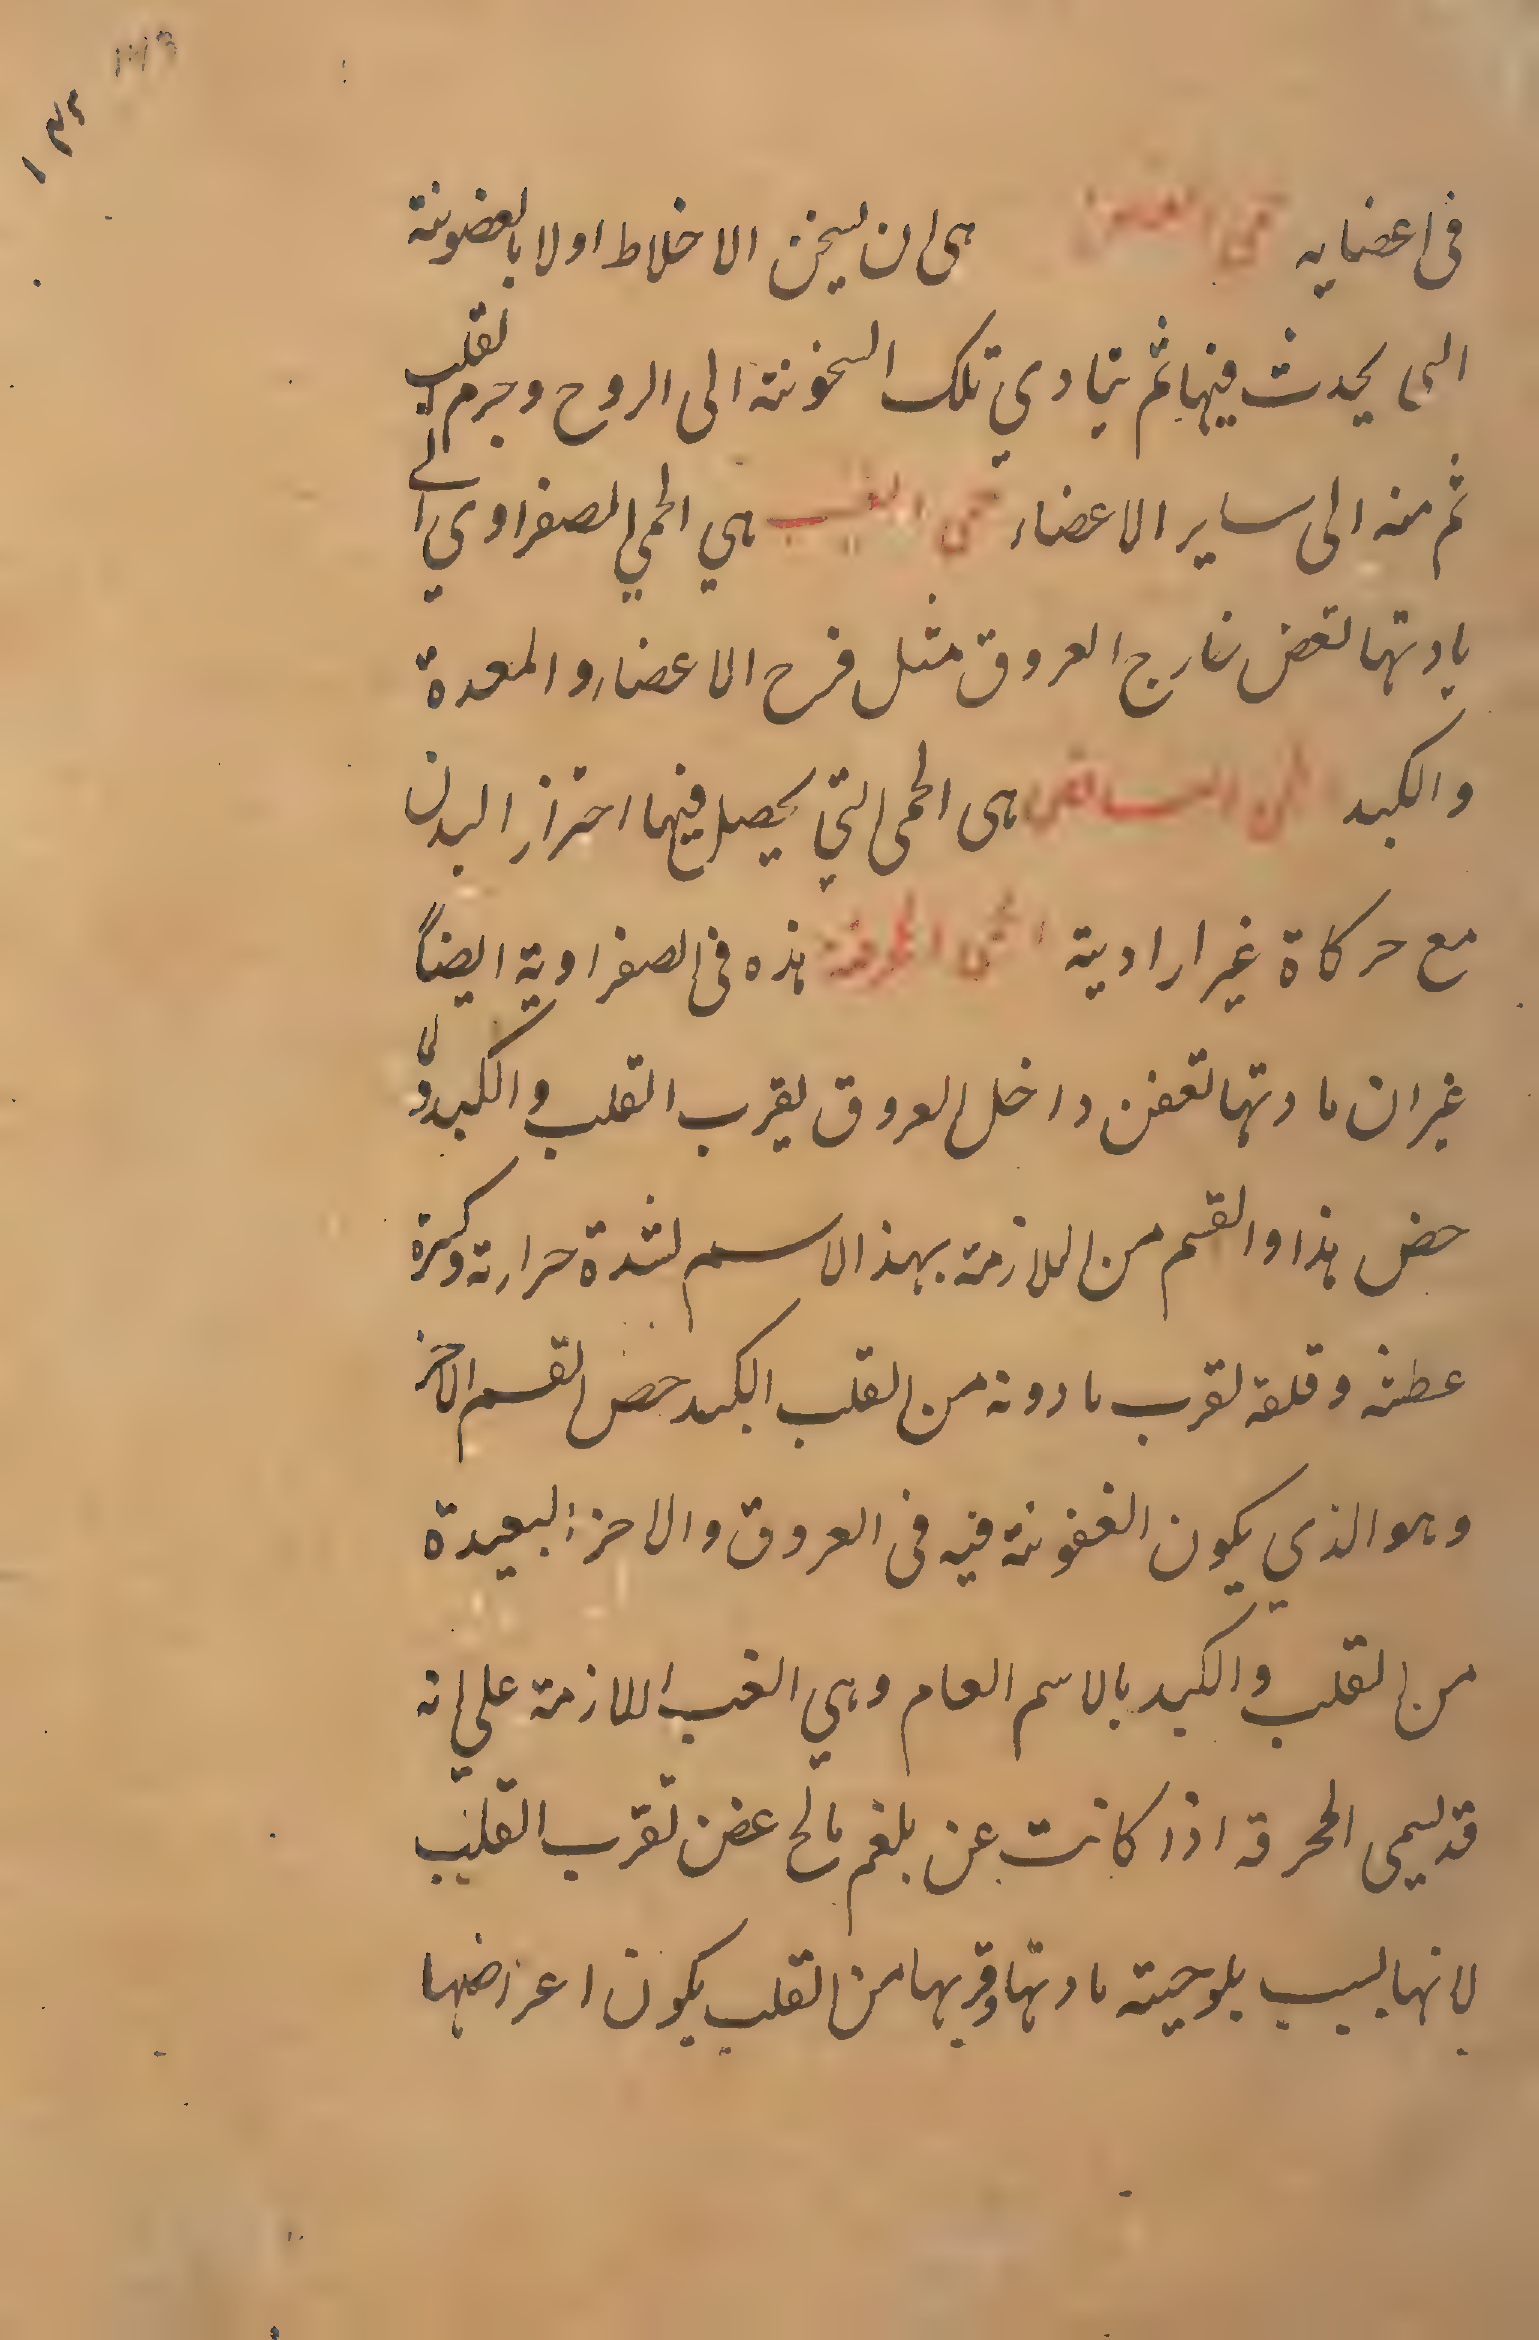 فى اعضايه هى ان يسخن الاخلاط اولا بالعفونة
التى يحدث فيها ثم يتادي تلك السخونة الى الروح وجرم القلب
ثم منه الى ساير الاعضاء حمى الغب هي الحمي الصفراوي التے
مادتها تعفن خارج العروق مثل فرح الاعضاء والمعدة
والكبد هى الحمى التي يحصل فيها احتراز البدن
مع حركاة غير ارادية الحمى المحرقة هذه فى الصفراوية ايضاً
غير ان مادتها تعفن داخل العروق بقرب القلب والكبد
خص هذا والقسم من اللازمة بهذ الاسم لشدة حرارته وكثرة
عطشه وقلقه لقرب مادونه من القلب الكبد خص القسم الاخر
وهوالذي يكون العفونة فيه فى العروق والاخر البعيدة
من القلب والكبد بالاسم العام وهي الغب اللازمة علي انه
قد يسمى المحرقة اذا كانت عن بلغم مالح عفن بقرب القلب
لانها بسبب بلوحيته مادتها وقربها من القلب يكون اعراضها